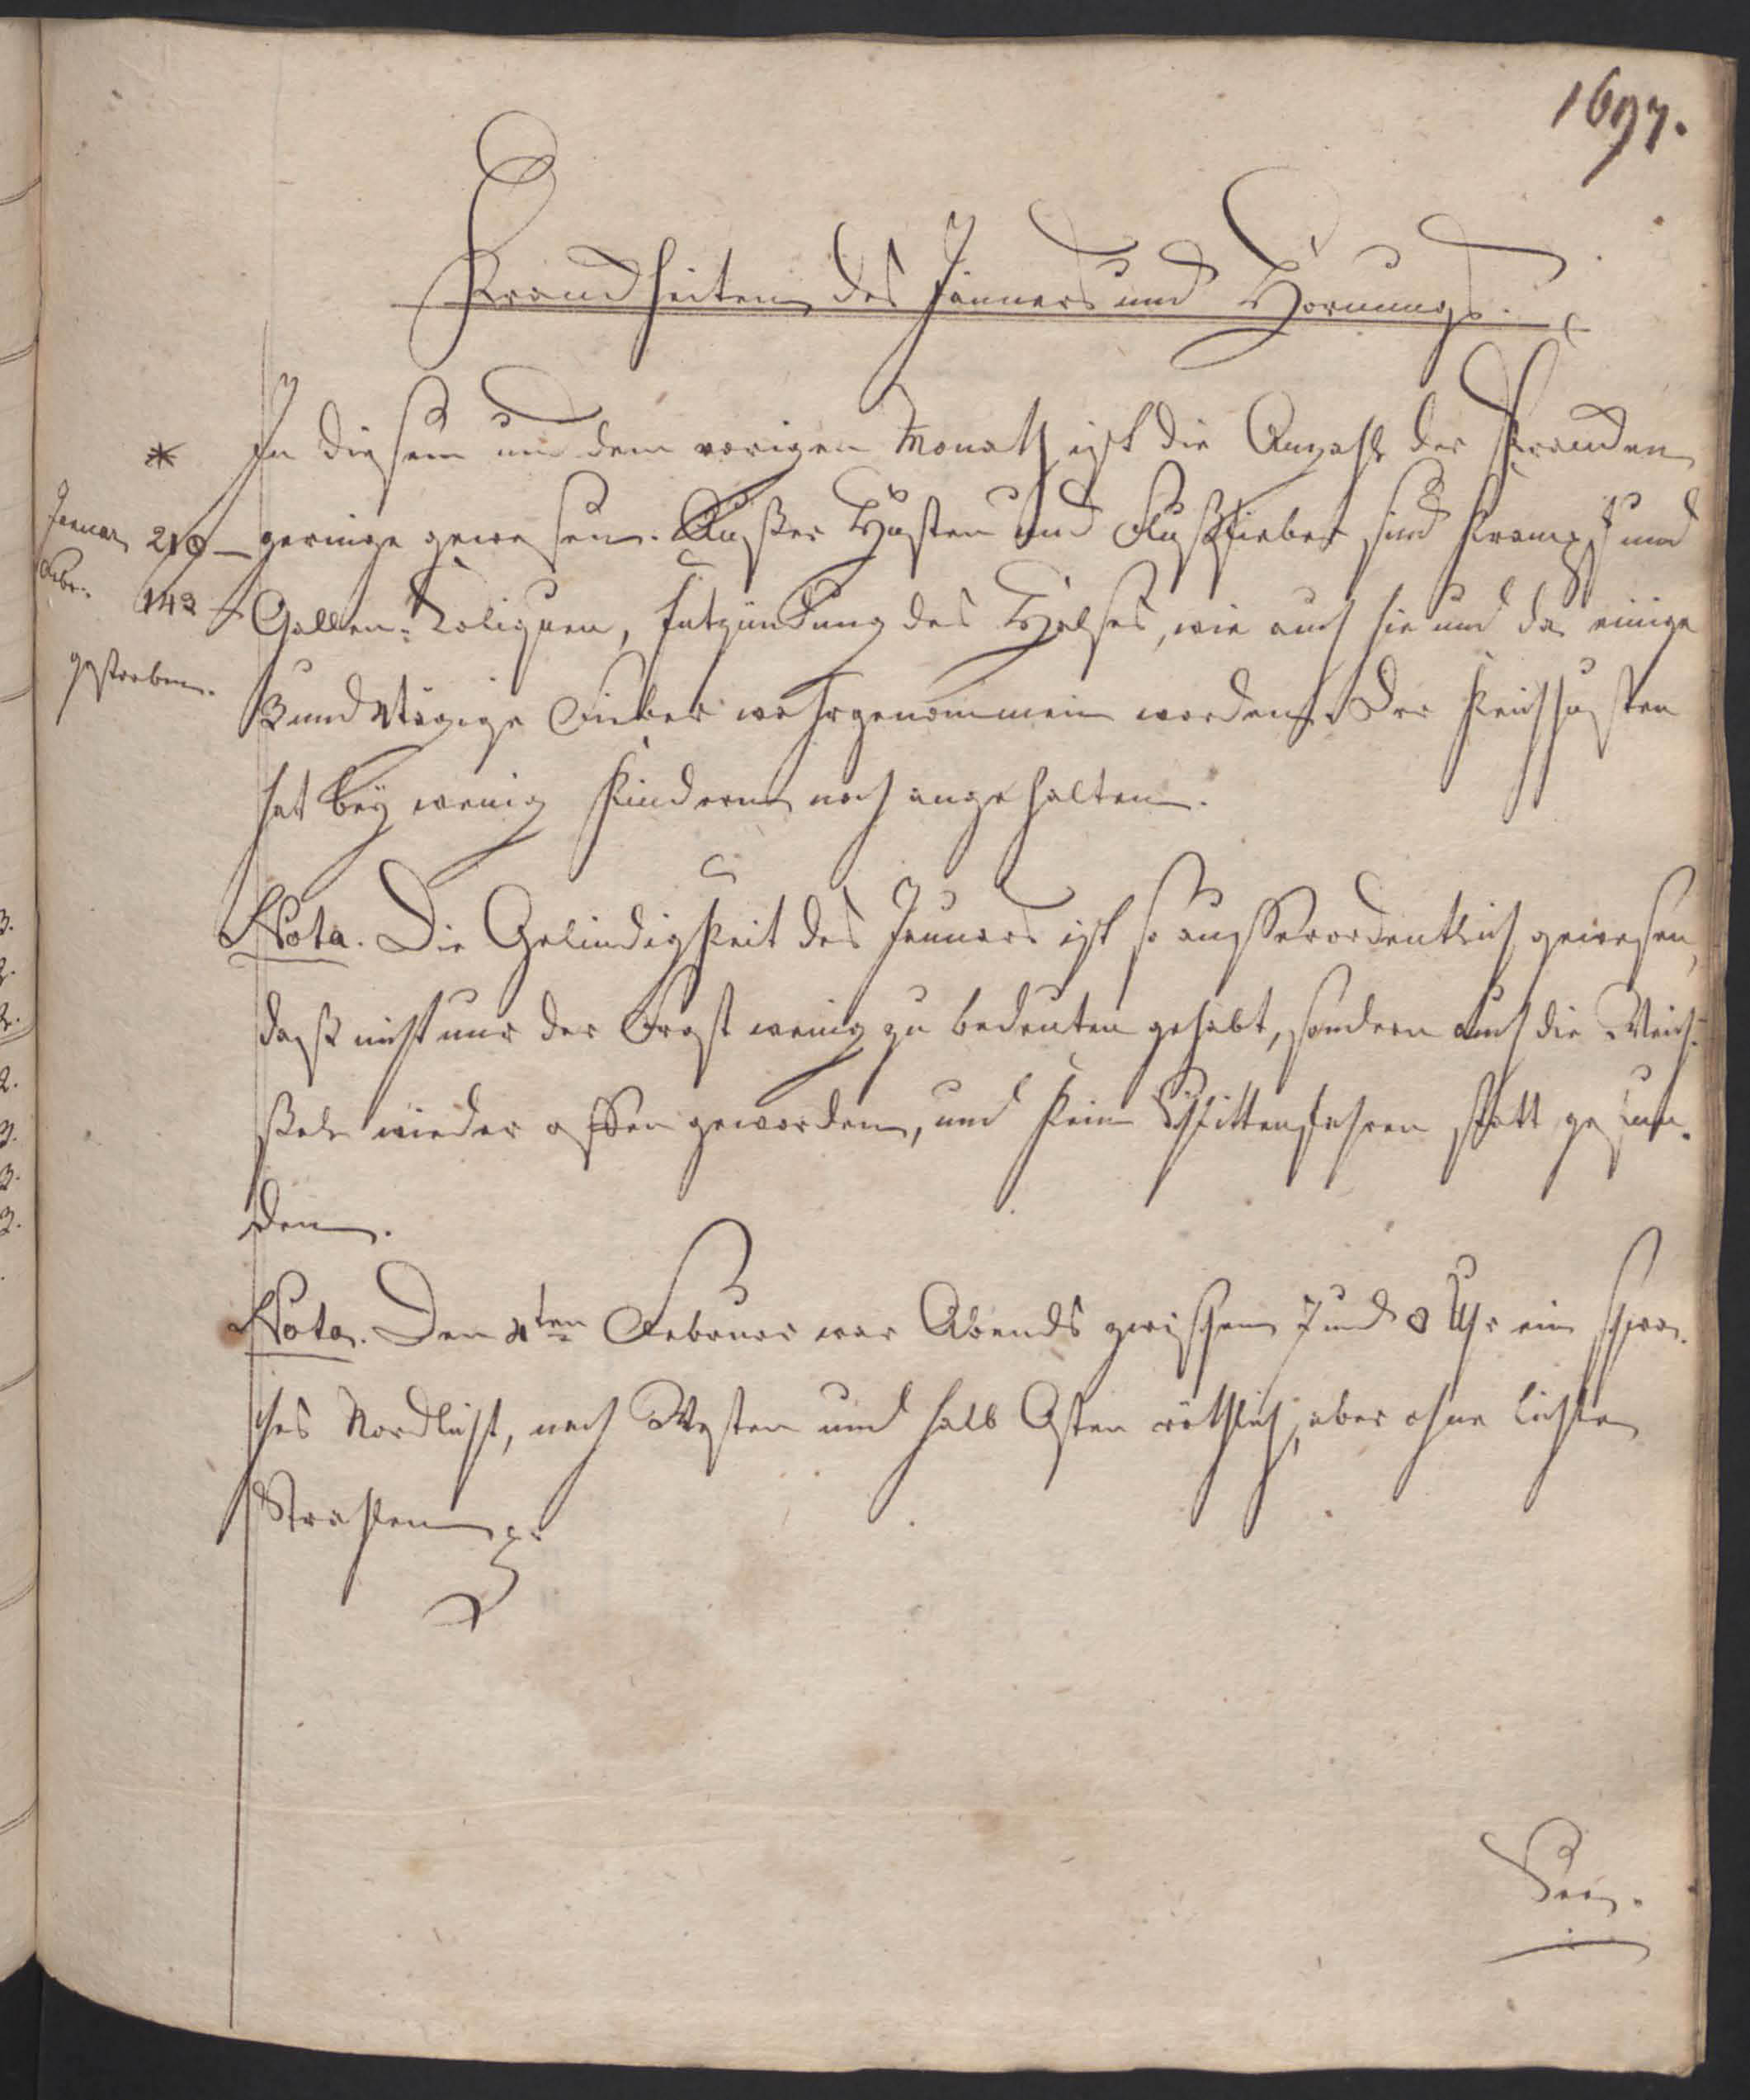 1697.
Kranckheiten des Jänners und Hornungs.
* In diesem und dem vorigen Monath ist die Anzahl der Krancken
Januar 210 – geringe gewesen. Außer Husten und Flußfieber sind Krampf und
Febr. 143 – Gallen-Coliquen, Entzündung des Halses, wie auch hie und da einige
gestorben.
3 und 4tägige Fieber wahrgenommen worden. Der Keichhusten
hat bey wenig Kindern noch angehalten.
Nota. Die Gelindigkeit des Januars ist so ausserordentlich gewesen,
daß nicht nur der Frost wenig zu bedeuten gehabt, sondern auch die Weich-
ßel wieder offen geworden, und kein Schlittenfahren statt gefun-
den.
Nota. Den 4ten Februar war Abends zwischen 7 und 8 Uhr ein schwa-
ches Nordlicht, nach Westen und halb Osten röthlich, aber ohne lichte
Strahlen